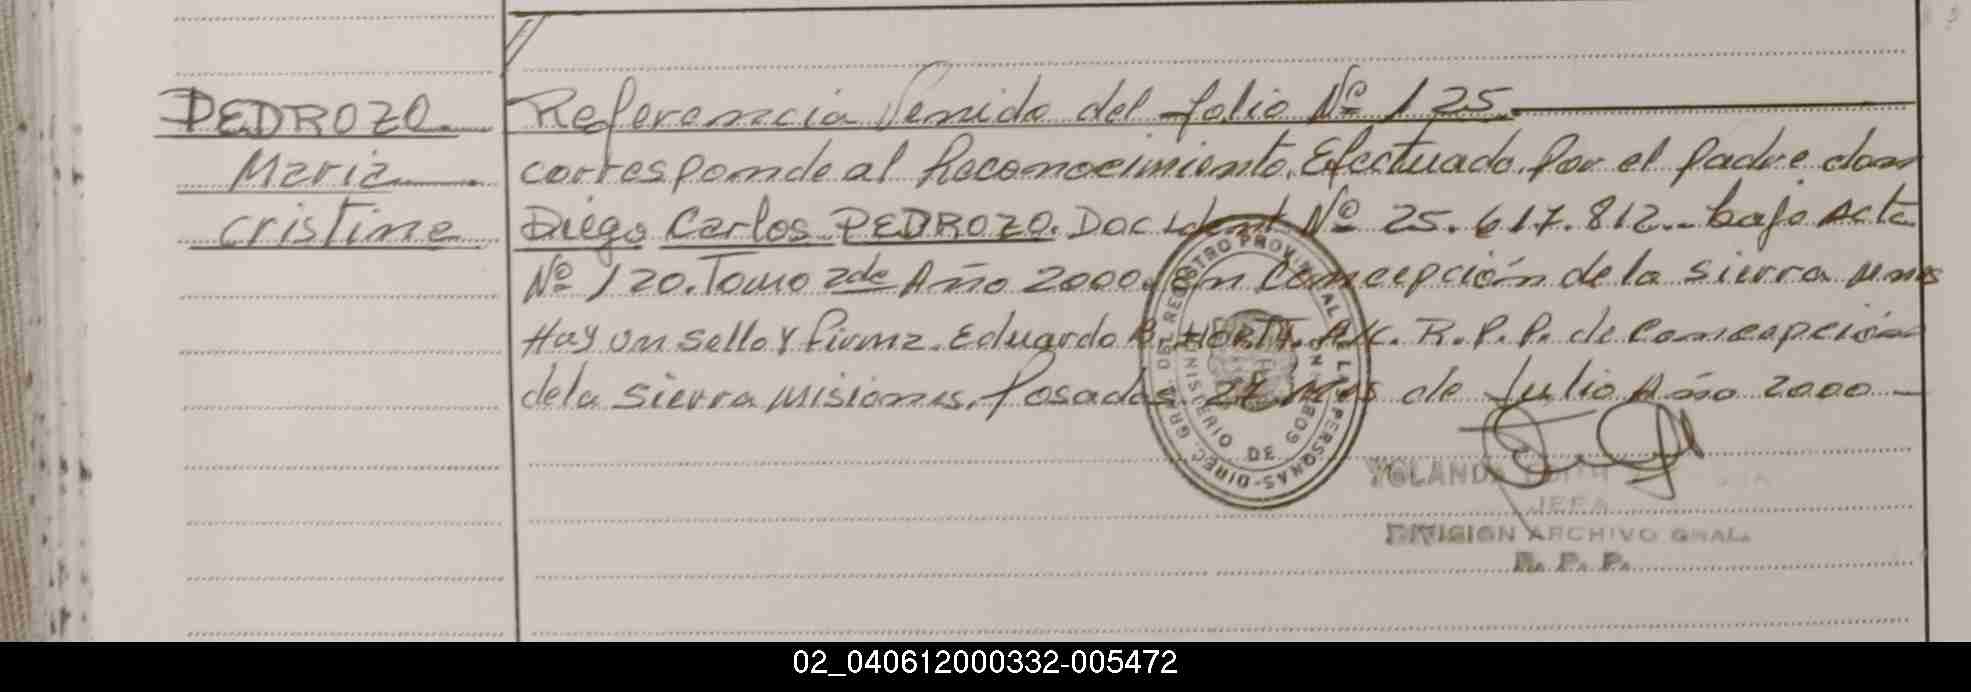 PEDROZO
Maria
cristina
Referencia Venida del folio Nº 125.
corresponde al Reconocimiento. Efectuado. por el padre don
Diego Carlos PEDROZO. Doc Ident Nº 25.617.812.- bajo Acta
Nº 120. Tomo 2do Año 2000. en Concepción de la Sierra Mnes
Hay un sello y firma. Eduardo R. A/C. R.P.P. de Concepción
de la Sierra Misiones. Posadas 27 mes de Julio Año 2000 -
DIREC. GRAL. DEL REGISTRO PROVINCIAL DE LAS PERSONAS
MINISTERIO DE GOBIERNO
YOLANDA
JEFA
DIVISION ARCHIVO GRAL.
R. P. P.
02_040612000332-005472